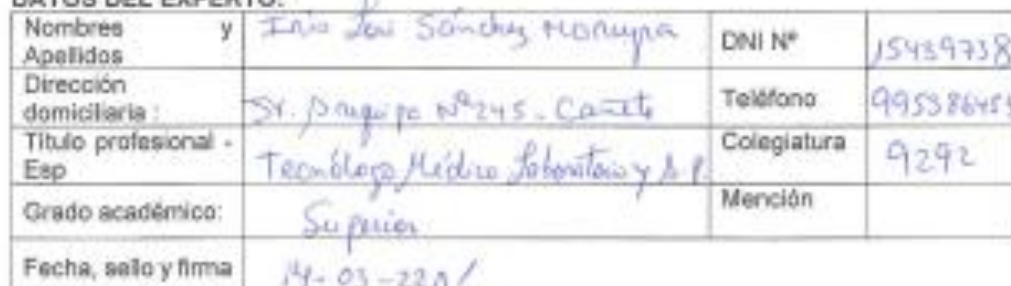 DATOS DEL EXPERTO:
Nombres y Apellidos Sánchez DNI Nº 15439738
Dirección domiciliaria : Nº 245 - Cañete Teléfono
Título profesional - Esp Tecnólogo Médico Laboratorio y Colegiatura 9292
Grado académico: Superior Mención
Fecha, sello y firma 14-03-22